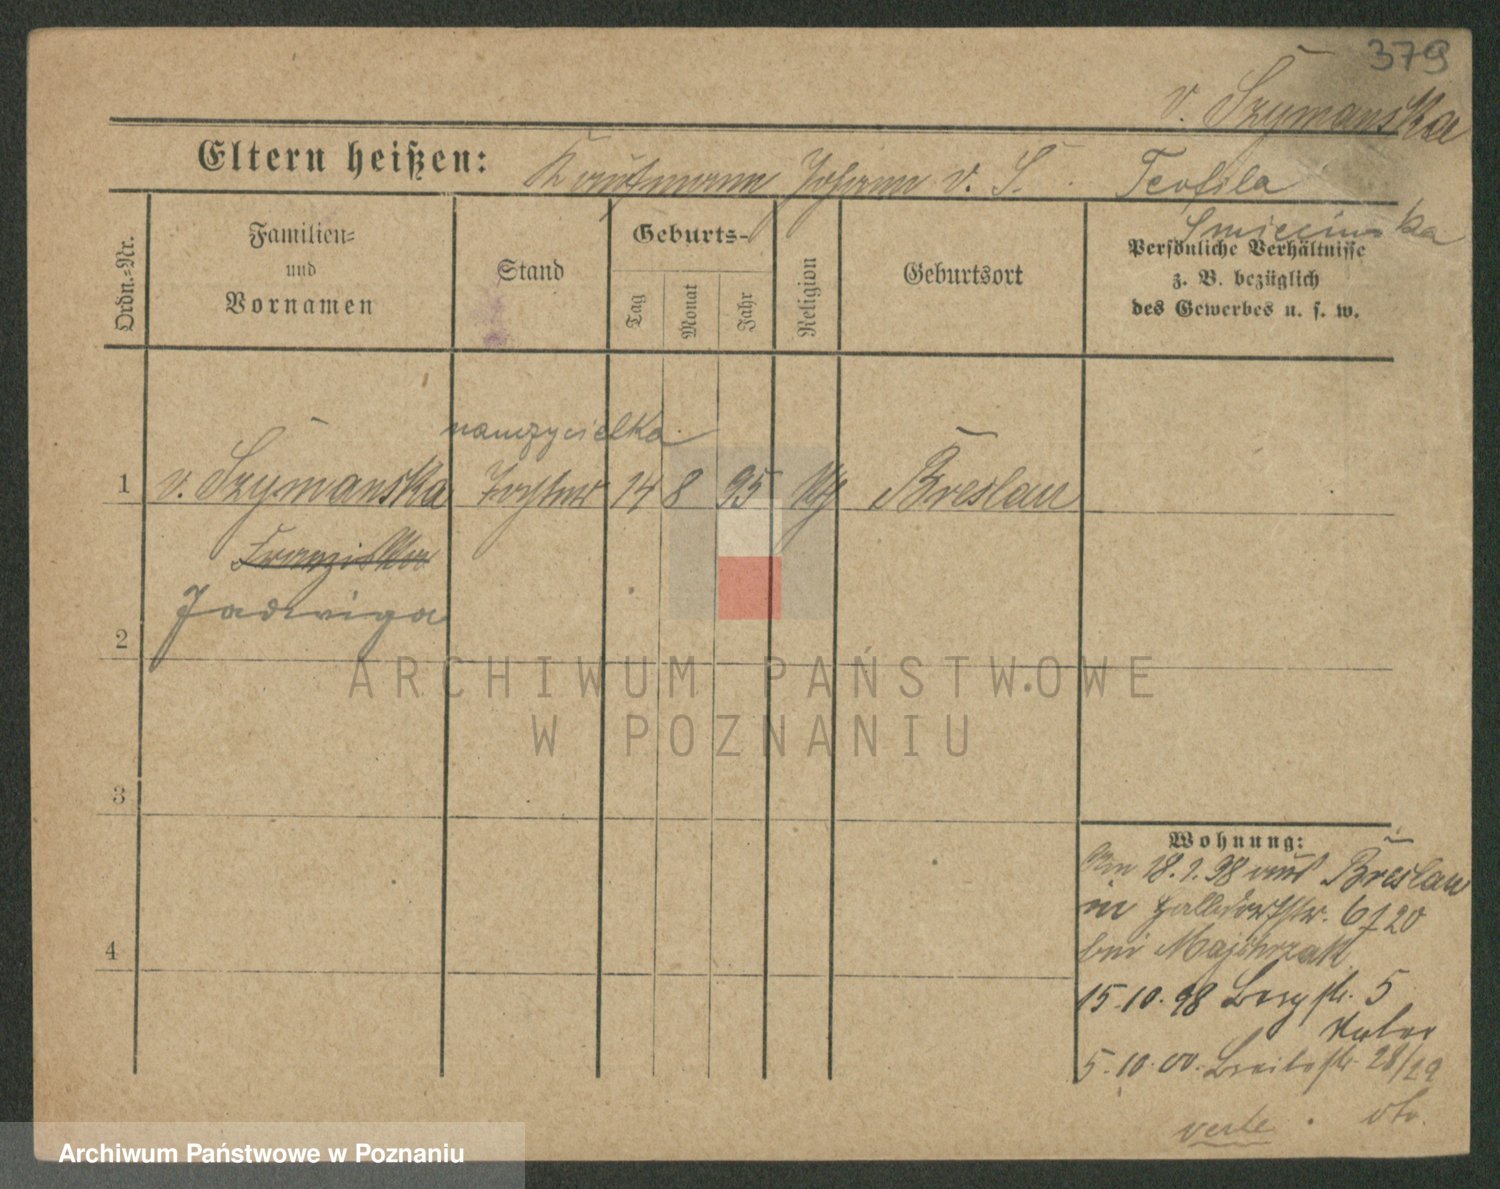 379
v. Szymanska
Eltern heißen: Kaufmann Johann v. S. Teofila
Smiecinska
Ordn.-Nr.
Familien-
und
Vornamen
Stand
Geburts-
Tag
Monat
Jahr
Religion
Geburtsort
Persönliche Verhältnisse
z. B. bezüglich
des Gewerbes u. s. w.
nauczycielka
1 v. Szymanska Tochter 14 8 95 Breslau
Franziska
Jadwiga
2
3
4
ARCHIWUM PAŃSTWOWE
W POZNANIU
Wohnung:
18.1.98 aus Breslau
in Halbdorfstr.
bei Majchrzak
15.10.98 Bergstr. 5
Vater
5.10.00. Breitestr. 28/29
verte
Archiwum Państwowe w Poznaniu